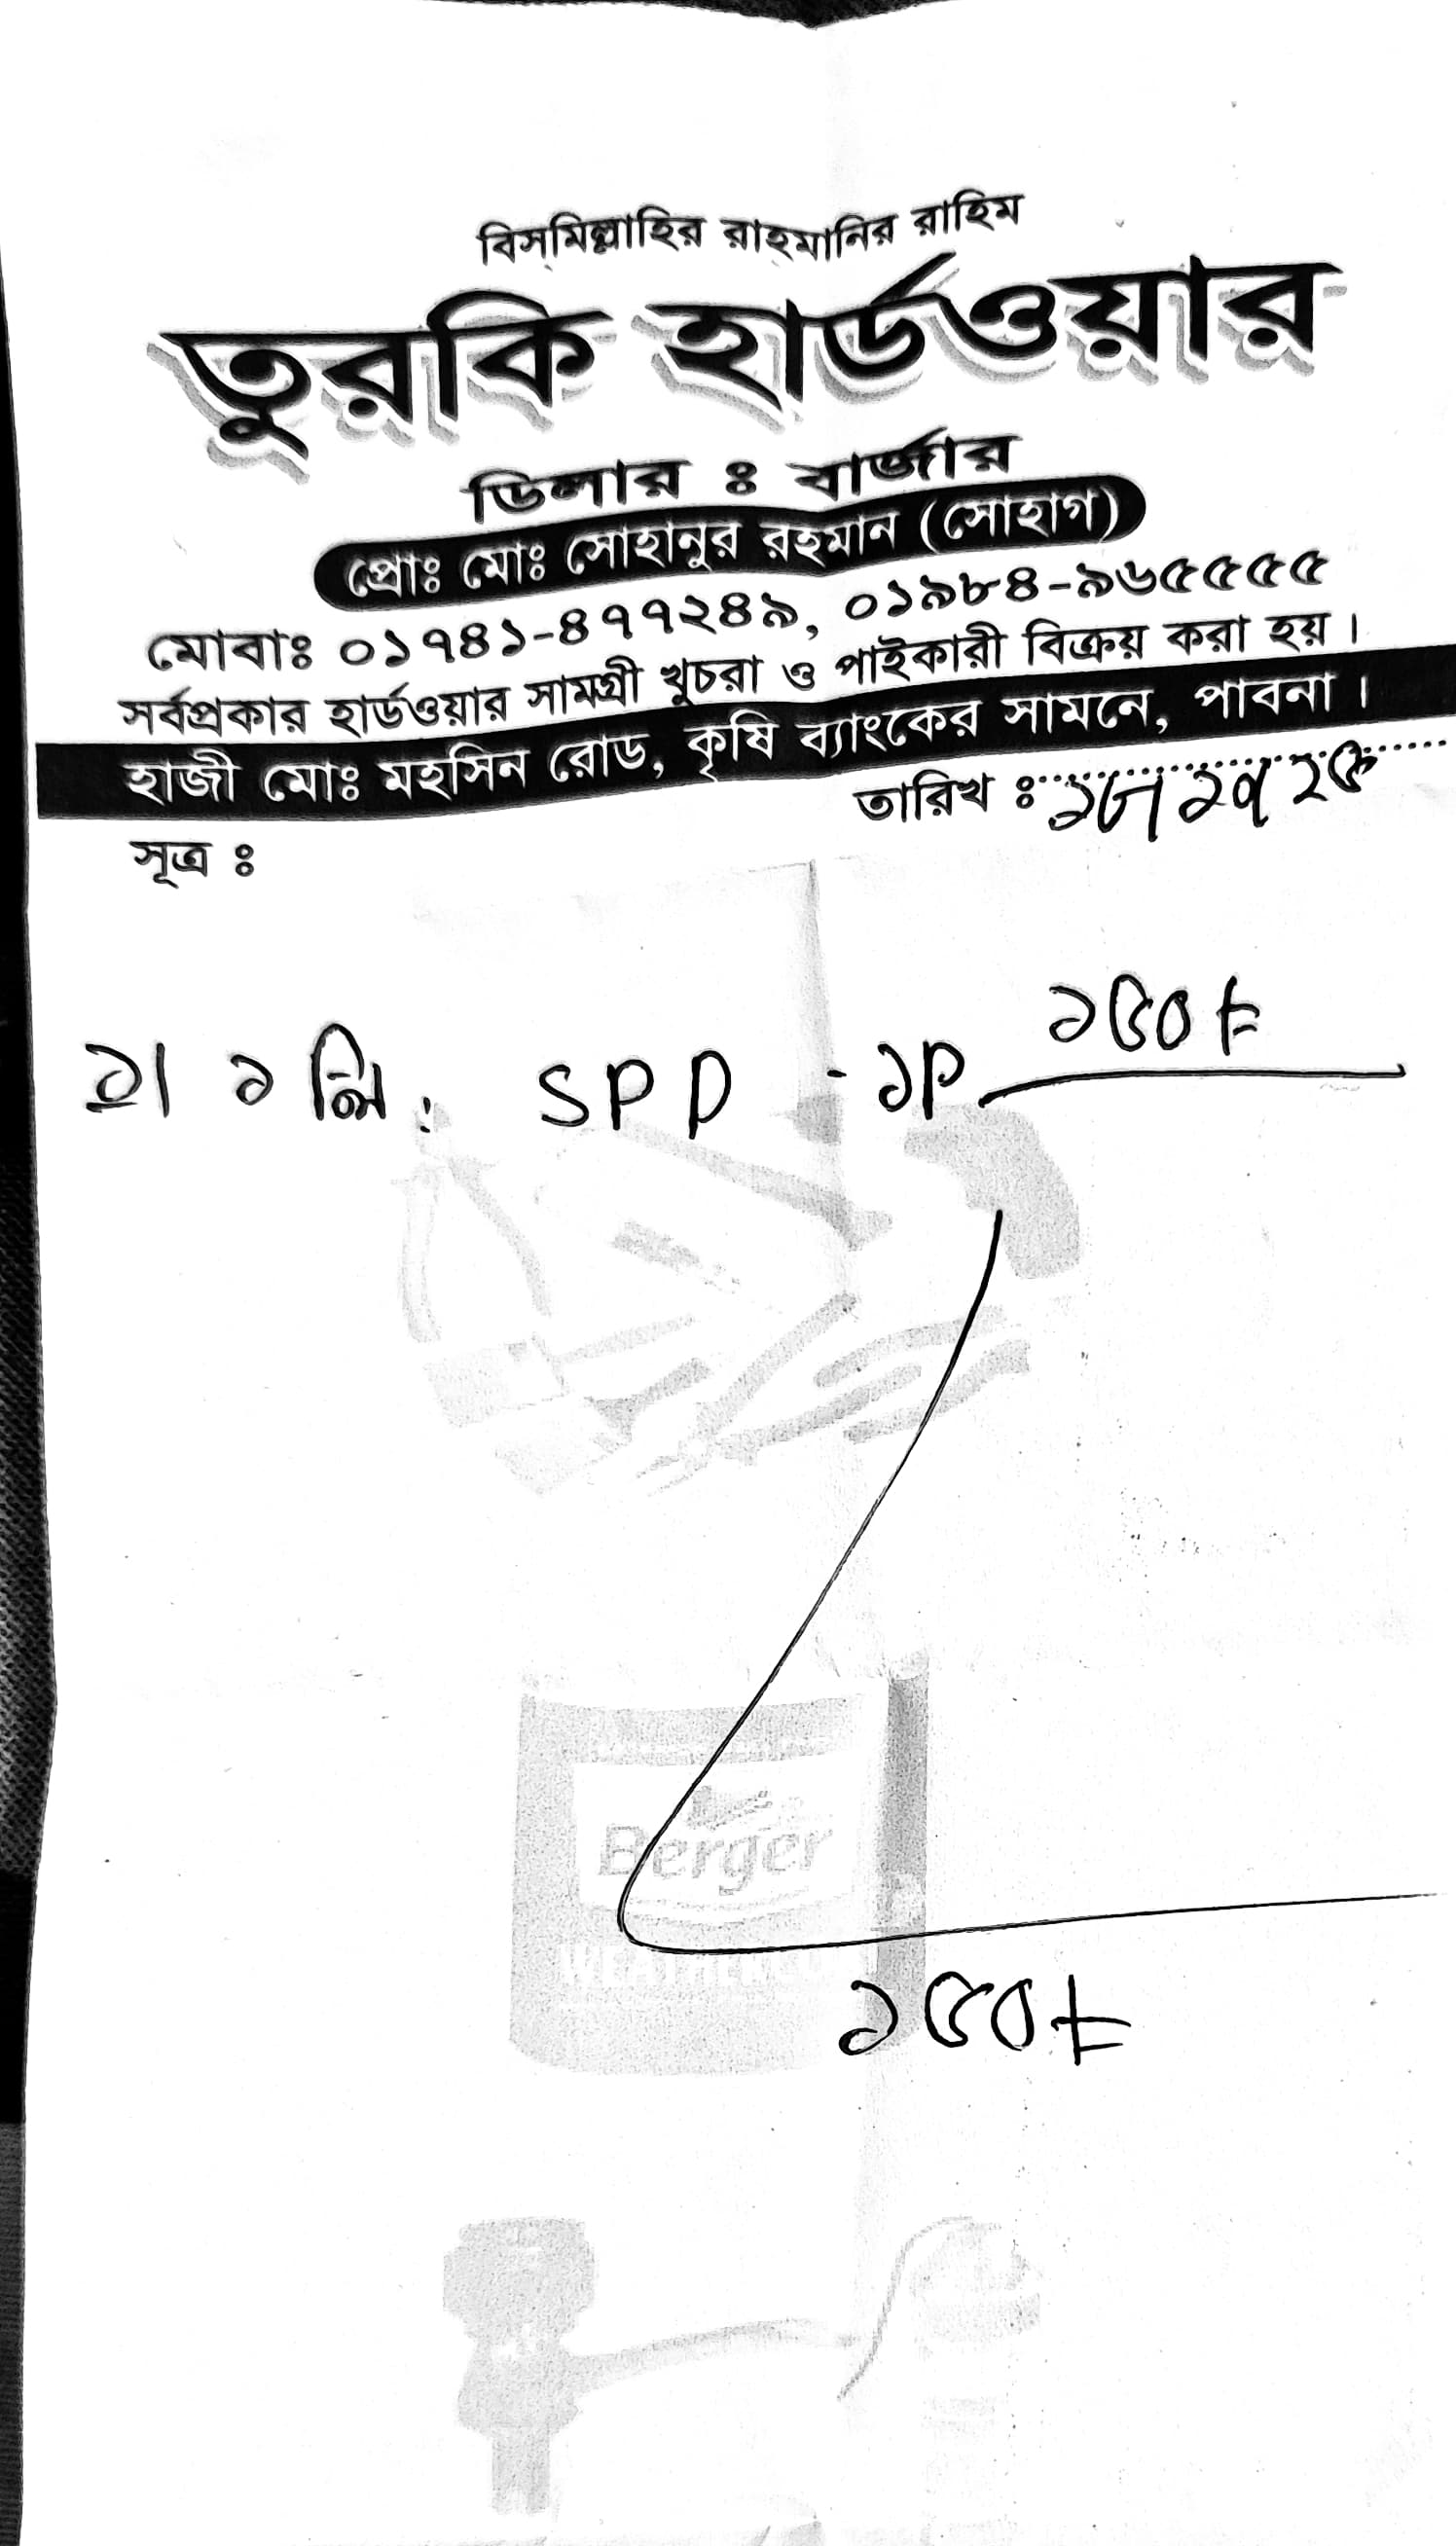 বিস্‌মিল্লাহির রাহমানির রাহিম
তুরকি হার্ডওয়ার
ডিলার ঃ বার্জার
প্রোঃ মোঃ সোহানুর রহমান (সোহাগ)
মোবাঃ ০১৭৪১-৪৭৭২৪৯, ০১৯৮৪-৯৬৫৫৫৫
সর্বপ্রকার হার্ডওয়ার সামগ্রী খুচরা ও পাইকারী বিক্রয় করা হয়।
হাজী মোঃ মহসিন রোড, কৃষি ব্যাংকের সামনে, পাবনা।
তারিখ ঃ
সূত্র ঃ
১৫০৳
১। ১ লি. SPD - ১P
Berger
১৫০৳